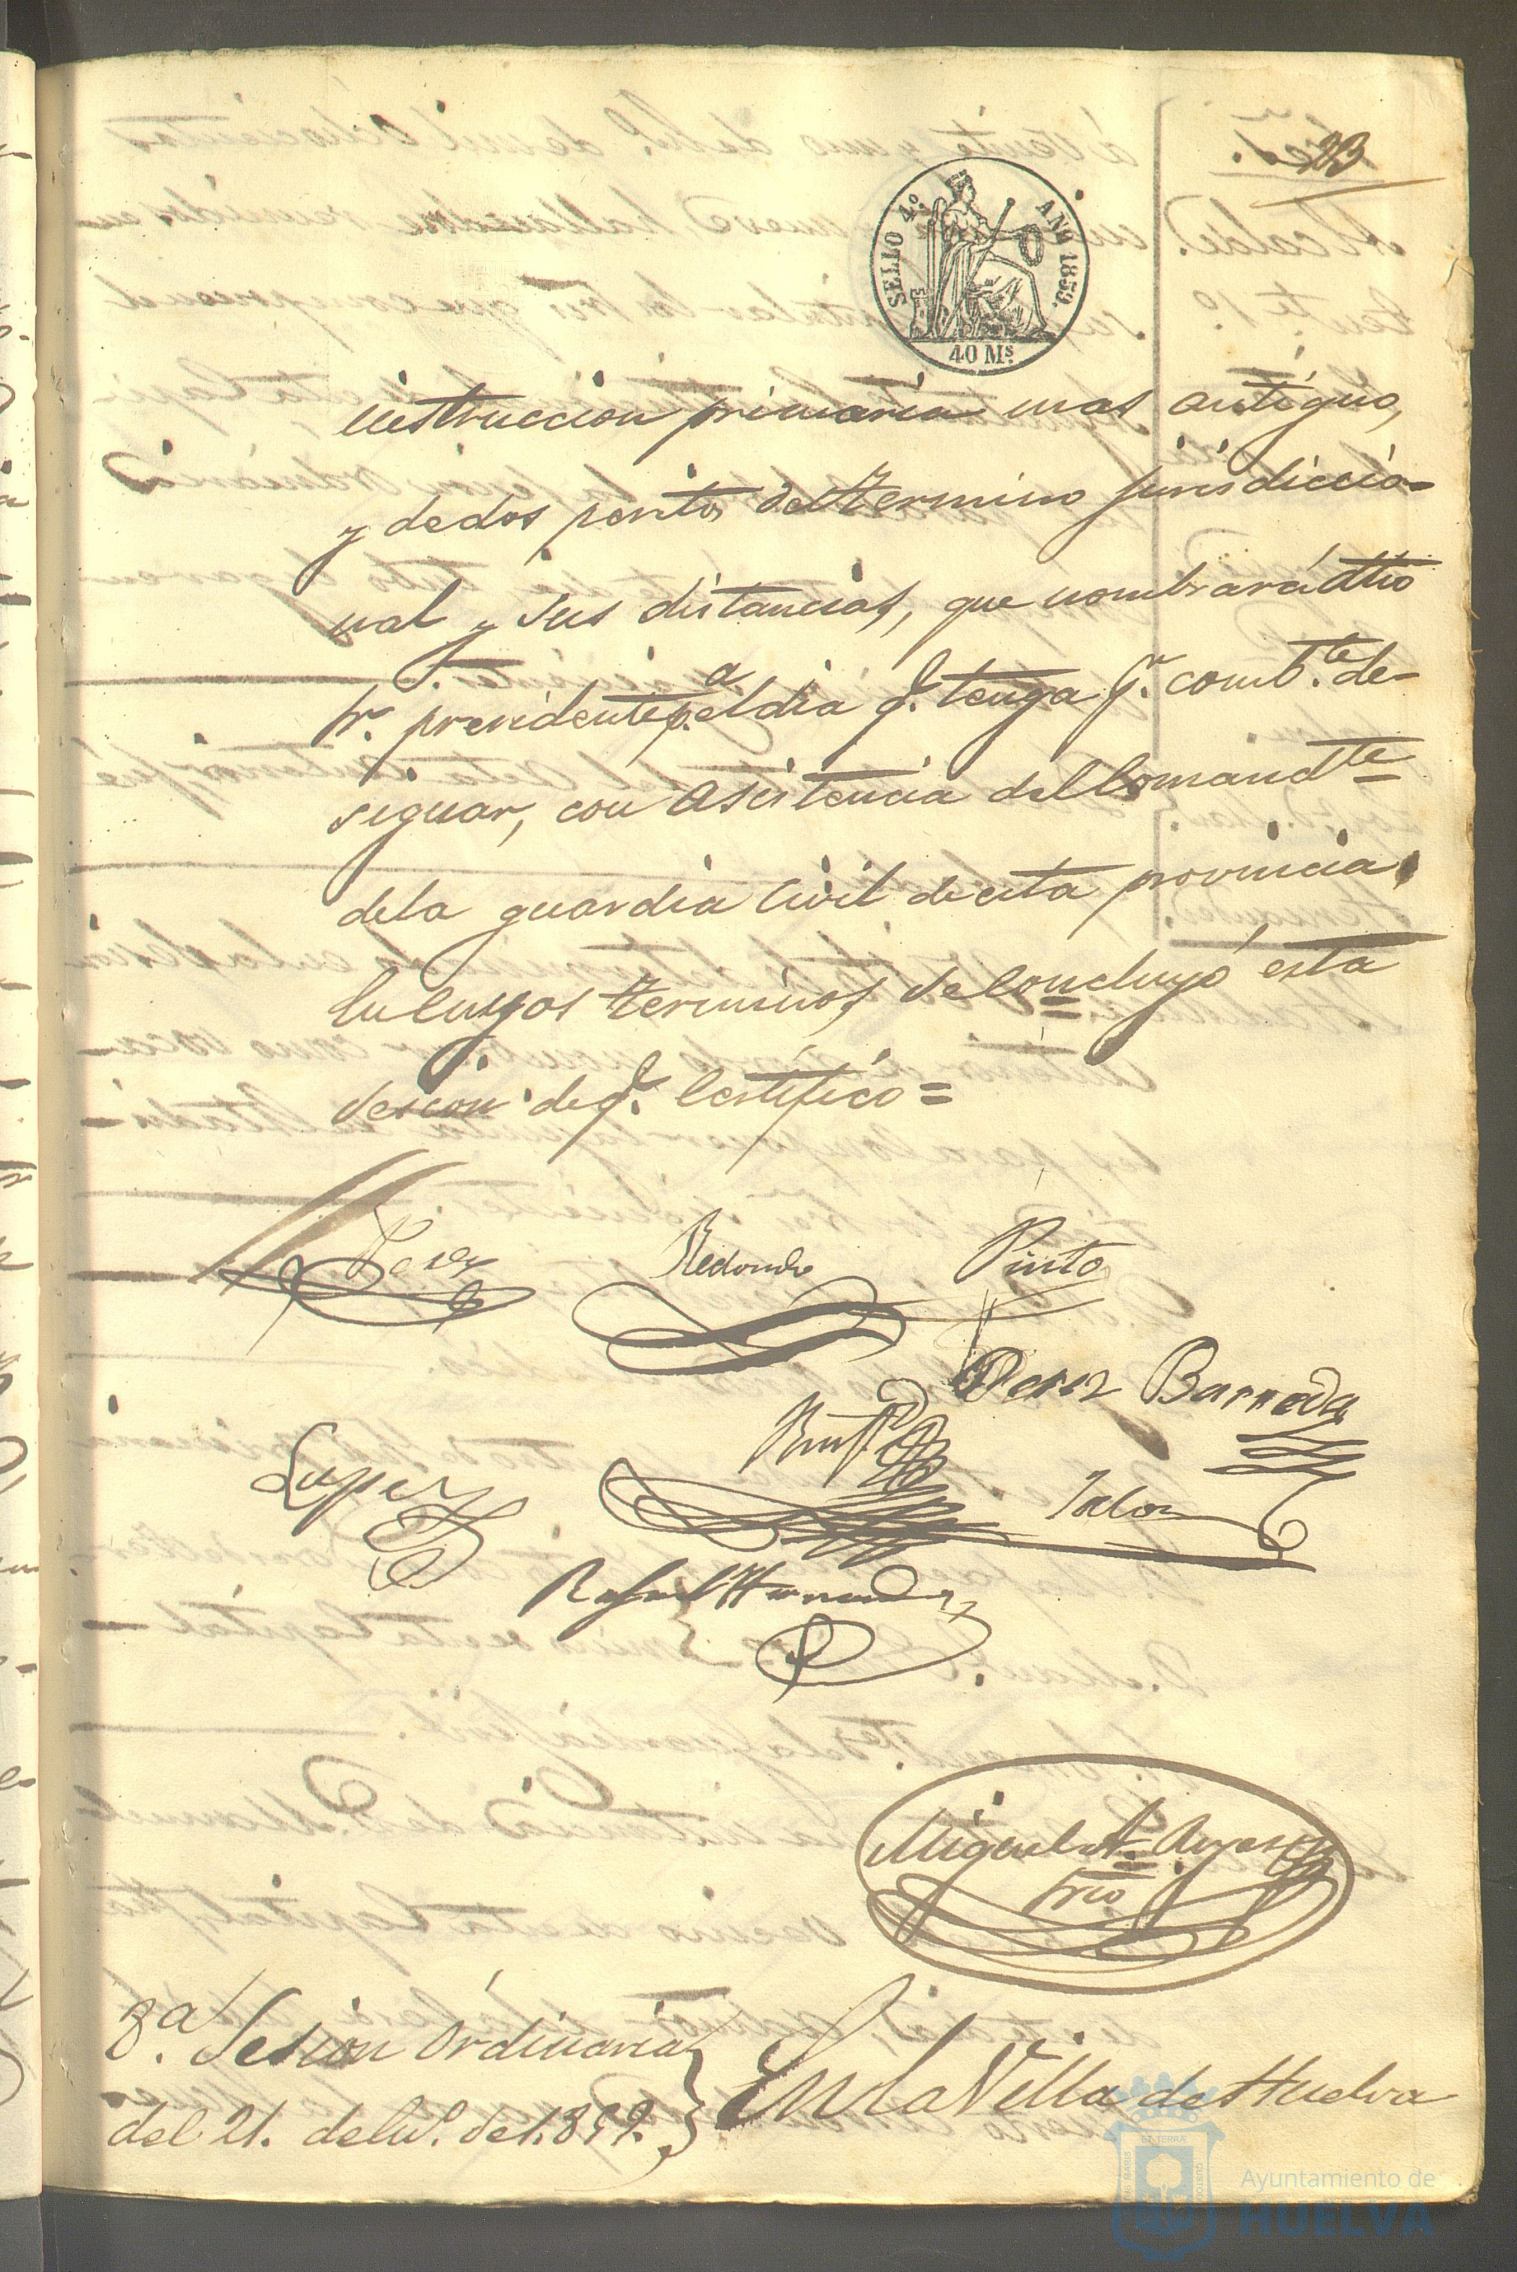 23
SELLO 4.º AÑO 1859.
40 Ms.
instruccion primaria mas antiguo,
y de dos peritos del termino jurisdiccio-
nal y sus distancias, que nombrará dho
Sr. presidente pa. el dia q. tenga pr. combte. de-
signar, con asistencia del Comandte
dela guardia Civil de esta provincia.
En cuyos terminos, se concluyó esta
sesion de q. Certifico=
Perez Redondo Pinto
Perez Barreda
Lopez
Rafael Hernandez
Miguel A.
Srio
8.ª Sesion Ordinaria
del 21. de En.º de 1.859.
En la Villa de Huelva
Ayuntamiento de
HUELVA